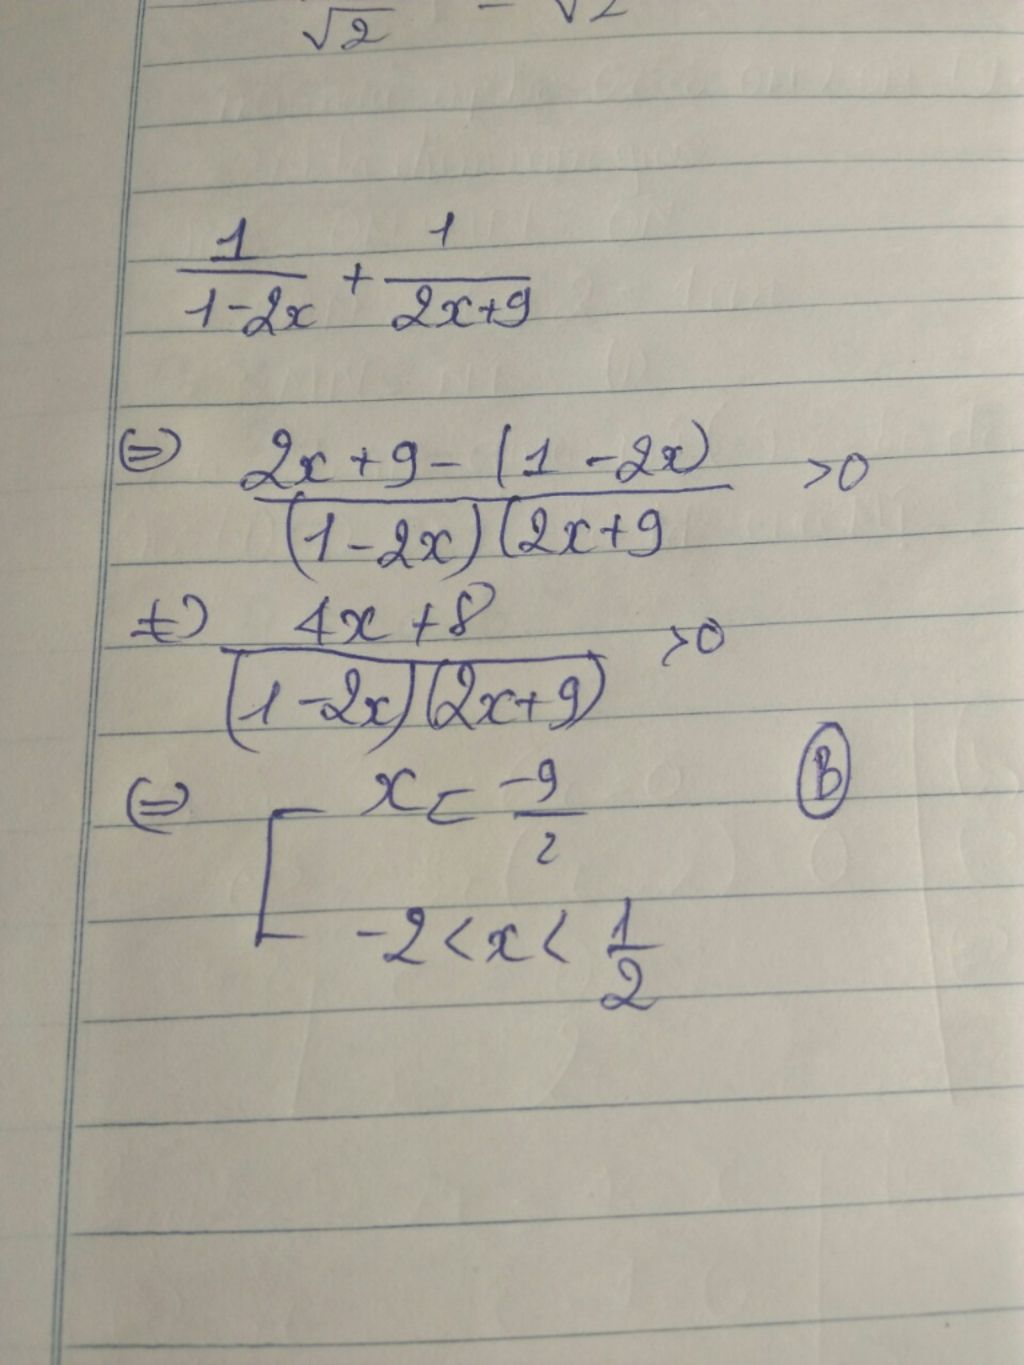 √2 - √2
1/(1-2x) + 1/(2x+9)
(=) (2x+9-(1-2x))/((1-2x)(2x+9) >0
(=) (4x+8)/((1-2x)(2x+9)) >0
(=) [ x < -9/2 (B)
-2<x<1/2